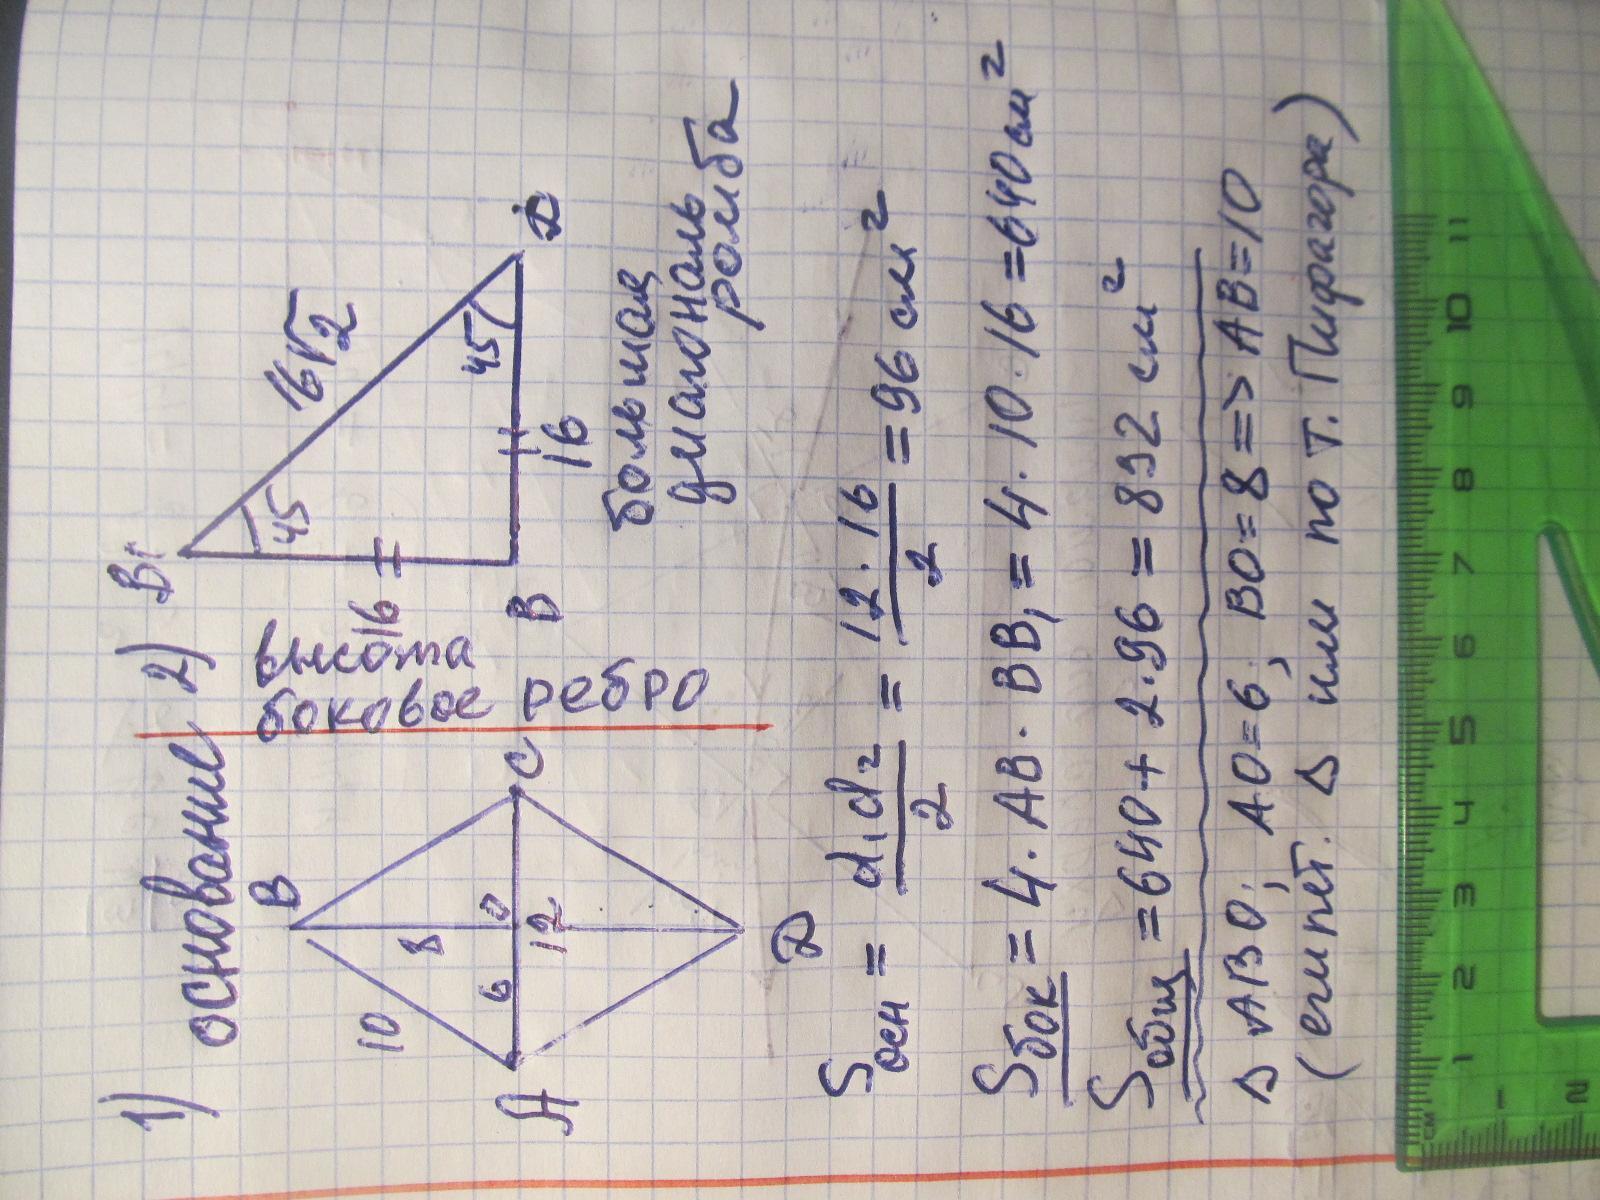 1) основание
B
10
8
6
O
12
A
C
D
2)
B₁
45
16√2
16
высота
боковое ребро
B
16
45
D
большая
диагональ
ромба
Sосн = d₁d₂/2 = 12·16/2 = 96 см²
Sбок = 4·AB·BB₁ = 4·10·16 = 640 см²
Sобщ = 640 + 2·96 = 832 см²
Δ ABO; AO=6; BO=8 => AB=10
(египет. Δ или по т. Пифагора)
см 1 2 3 4 5 6 7 8 9 10 11
1
2